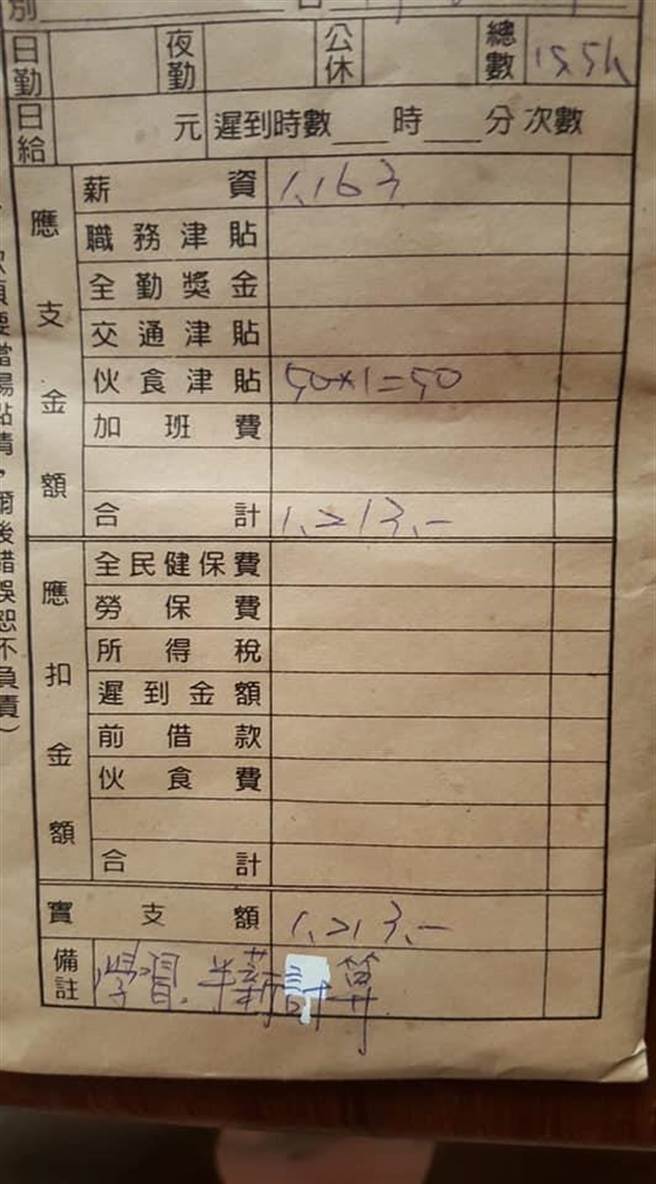 別
日勤 夜勤 公休 總數 15.5h
日給 元 遲到時數 時 分 次數
應支金額
薪資 1,163
職務津貼
全勤獎金
交通津貼
伙食津貼 50×1=50
加班費
合計 1,213.-
應扣金額
全民健保費
勞保費
所得稅
遲到金額
前借款
伙食費
合計
實支額 1,213.-
備註 學習.半薪計算
點清，爾後錯誤恕不負責）